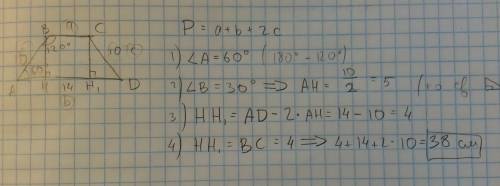 B a C
120° 10(c)
60°
A H 14 H₁ D
b)
P = a + b + 2c
1) ∠A = 60° (180° - 120°)
2) ∠B = 30° ⟹ AH = 10/2 = 5
3) HH₁ = AD - 2·AH = 14 - 10 = 4
4) HH₁ = BC = 4 ⟹ 4 + 14 + 2·10 = 38 см